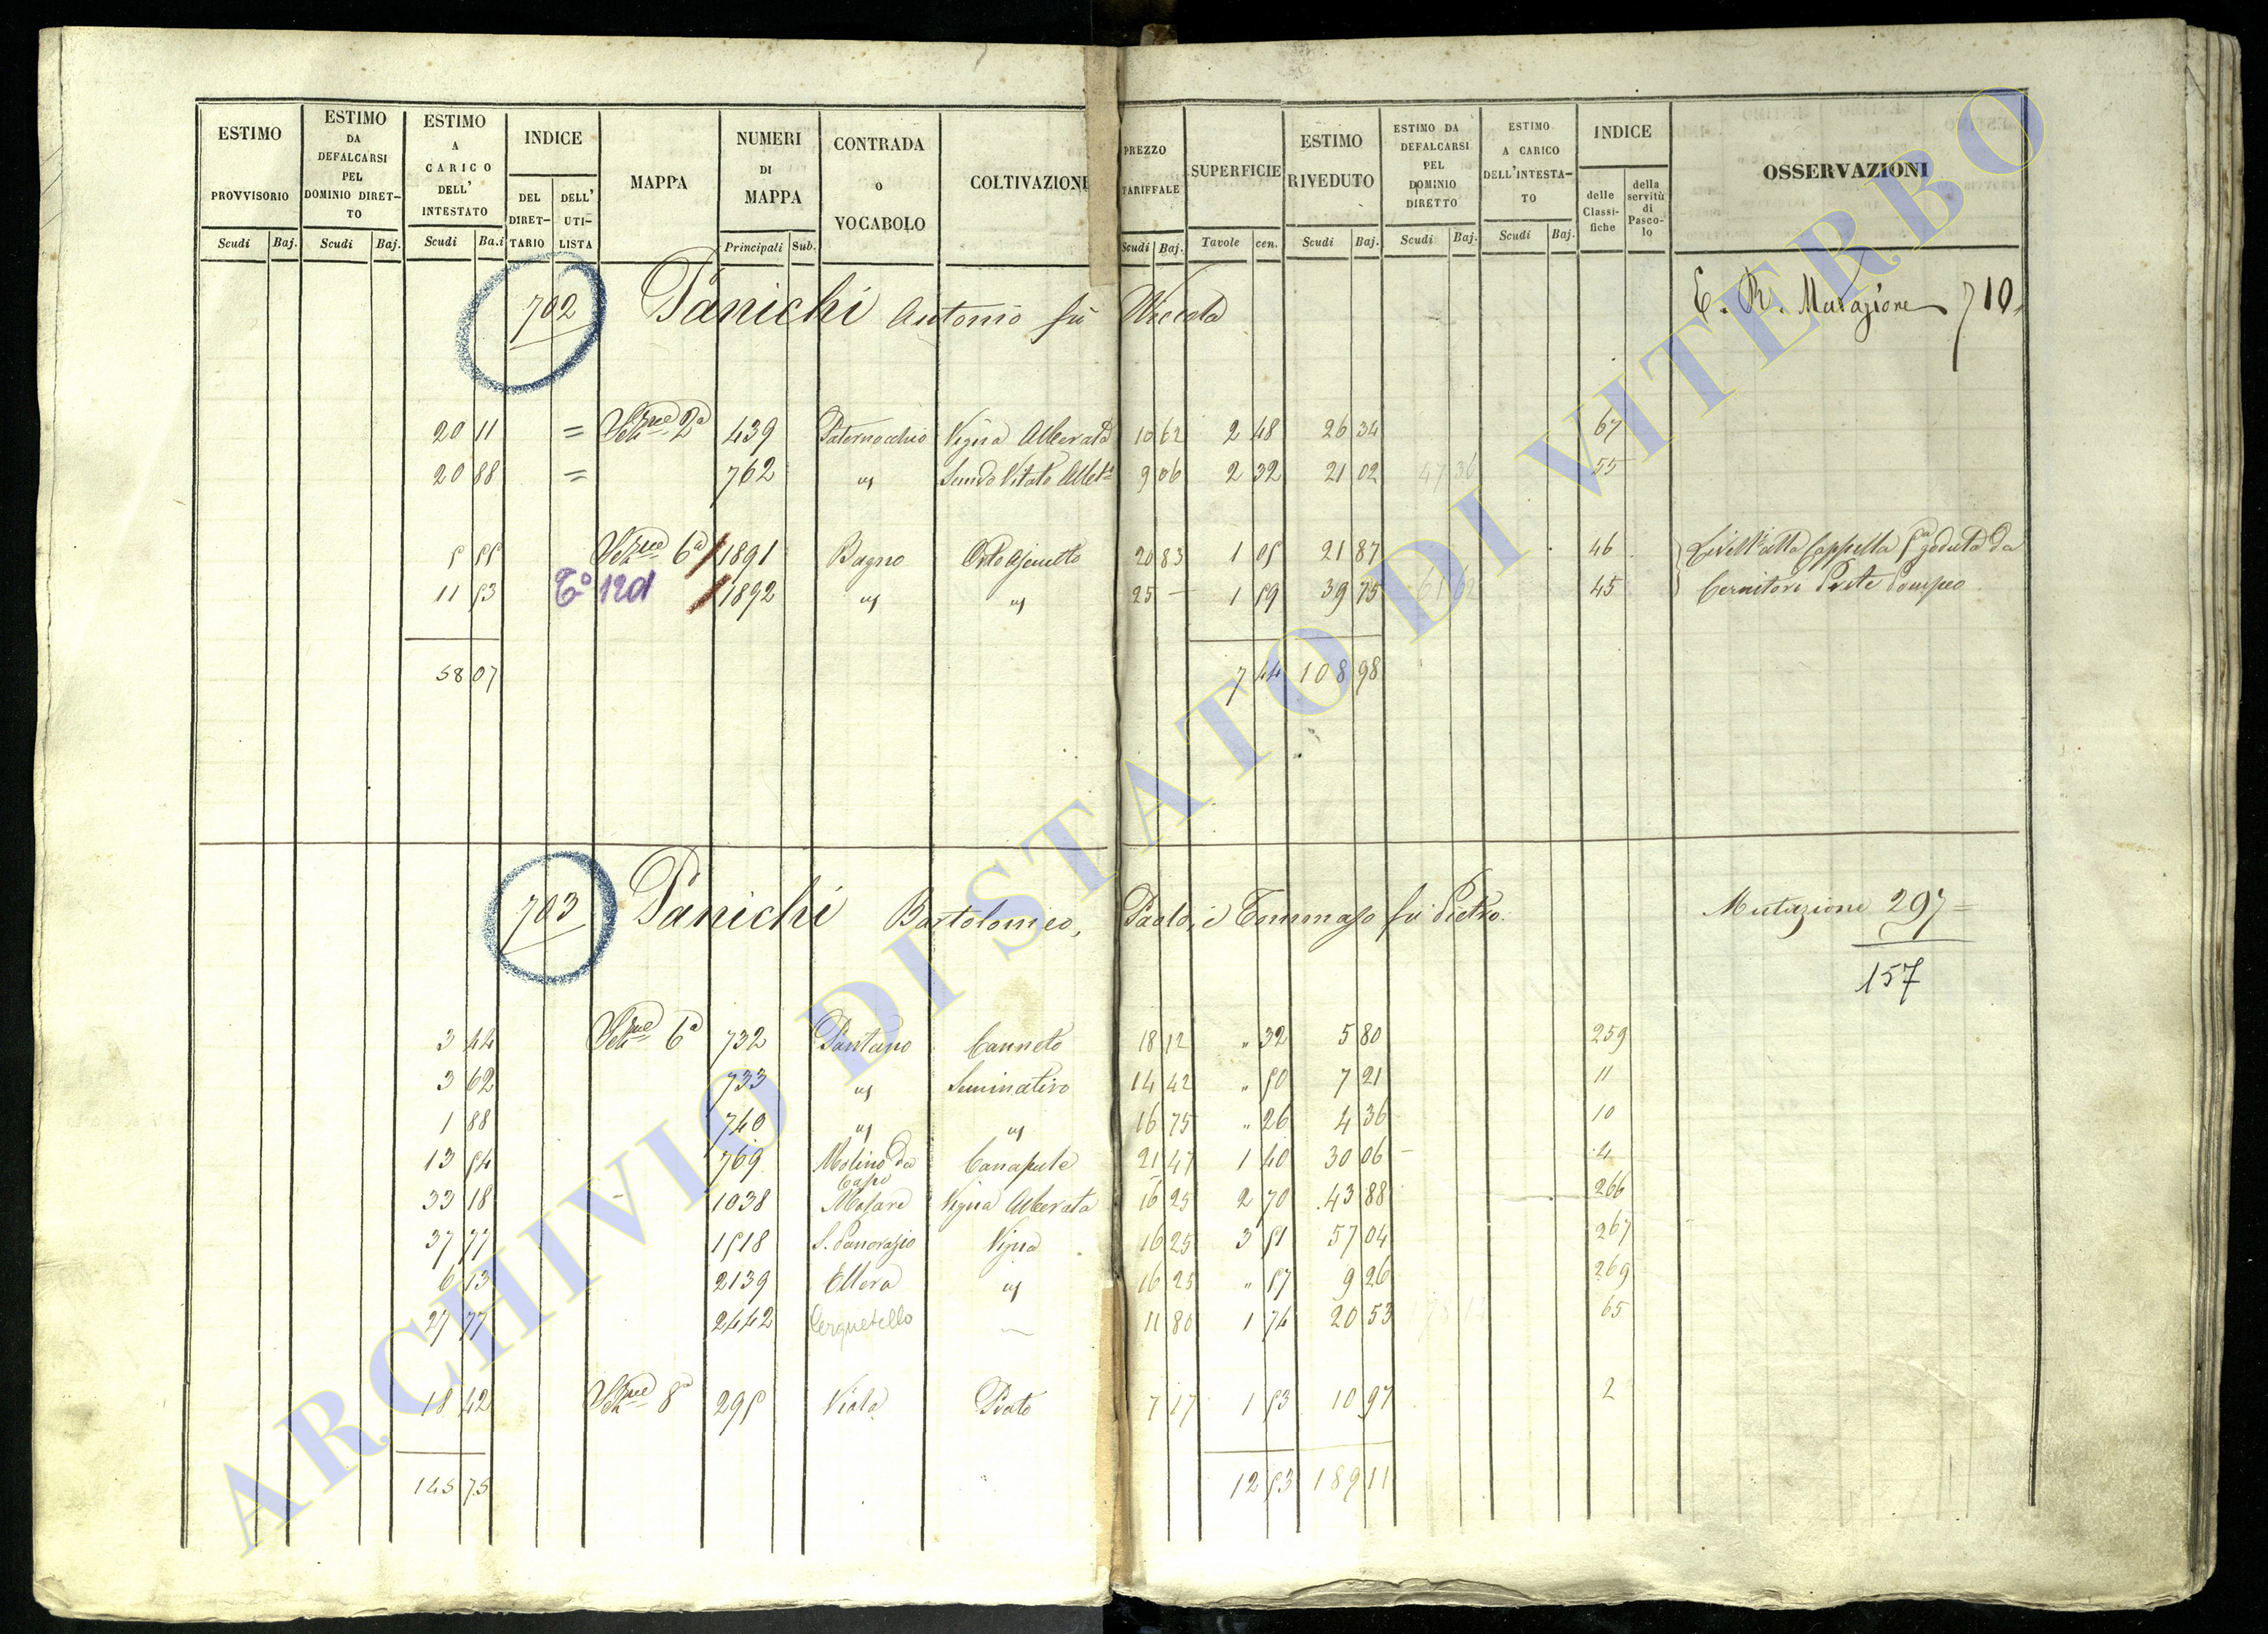 ESTIMO PROVVISORIO Scudi Baj.
ESTIMO DA DEFALCARSI PEL DOMINIO DIRETTO Scudi Baj.
ESTIMO A CARICO DELL' INTESTATO Scudi Ba.i
INDICE DEL DIRETTARIO DELL' UTILISTA
MAPPA
NUMERI DI MAPPA Principali Sub.
CONTRADA O VOCABOLO
COLTIVAZIONE
PREZZO TARIFFALE Scudi Baj.
SUPERFICIE Tavole cen.
ESTIMO RIVEDUTO Scudi Baj.
ESTIMO DA DEFALCARSI PEL DOMINIO DIRETTO Scudi Baj.
ESTIMO A CARICO DELL'INTESTATO Scudi Baj.
INDICE delle Classifiche della servitù di Pascolo
OSSERVAZIONI
702 Panichi Antonio fù 710
20 11 = 2a 439 Vigna Alberata 10 62 2 48 26 34 67
20 88 = 762 " 9 06 2 32 21 02 55
5 55 6a 1891 Bagno 20 83 1 05 21 87 46
11 53 1892 " " 25 — 1 59 39 75 45
58 07 7 44 108 98
703 Panichi Bartolomeo, Paolo, e Tommaso fù Pietro. Mutazione 297 =
157
3 44 6a 732 Pantano Canneto 18 12 " 32 5 80 259
3 62 733 " Seminativo 14 42 " 50 7 21 11
1 88 740 " " 16 75 " 26 4 36 10
13 54 769 Molino da Capo Canapule 21 47 1 40 30 06 4
33 18 1038 Vigna Alberata 16 25 2 70 43 88 266
37 77 1518 S. Pancrazio Vigna 16 25 3 51 57 04 267
6 13 2139 Ellera " 16 25 " 57 9 26 269
27 77 2442 Cerquetello 11 80 1 74 20 53 65
18 42 8a 295 Viola Prato 7 17 1 53 10 97 2
145 75 12 53 189 11
ARCHIVIO DI STATO DI VITERBO